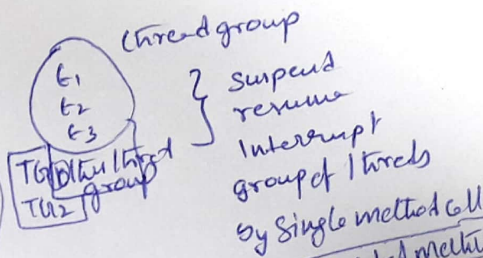 thread group
t1
t2
t3
suspend
resume
Interrupt
group of threds
by single method call
TG1 other thred
group
TG2